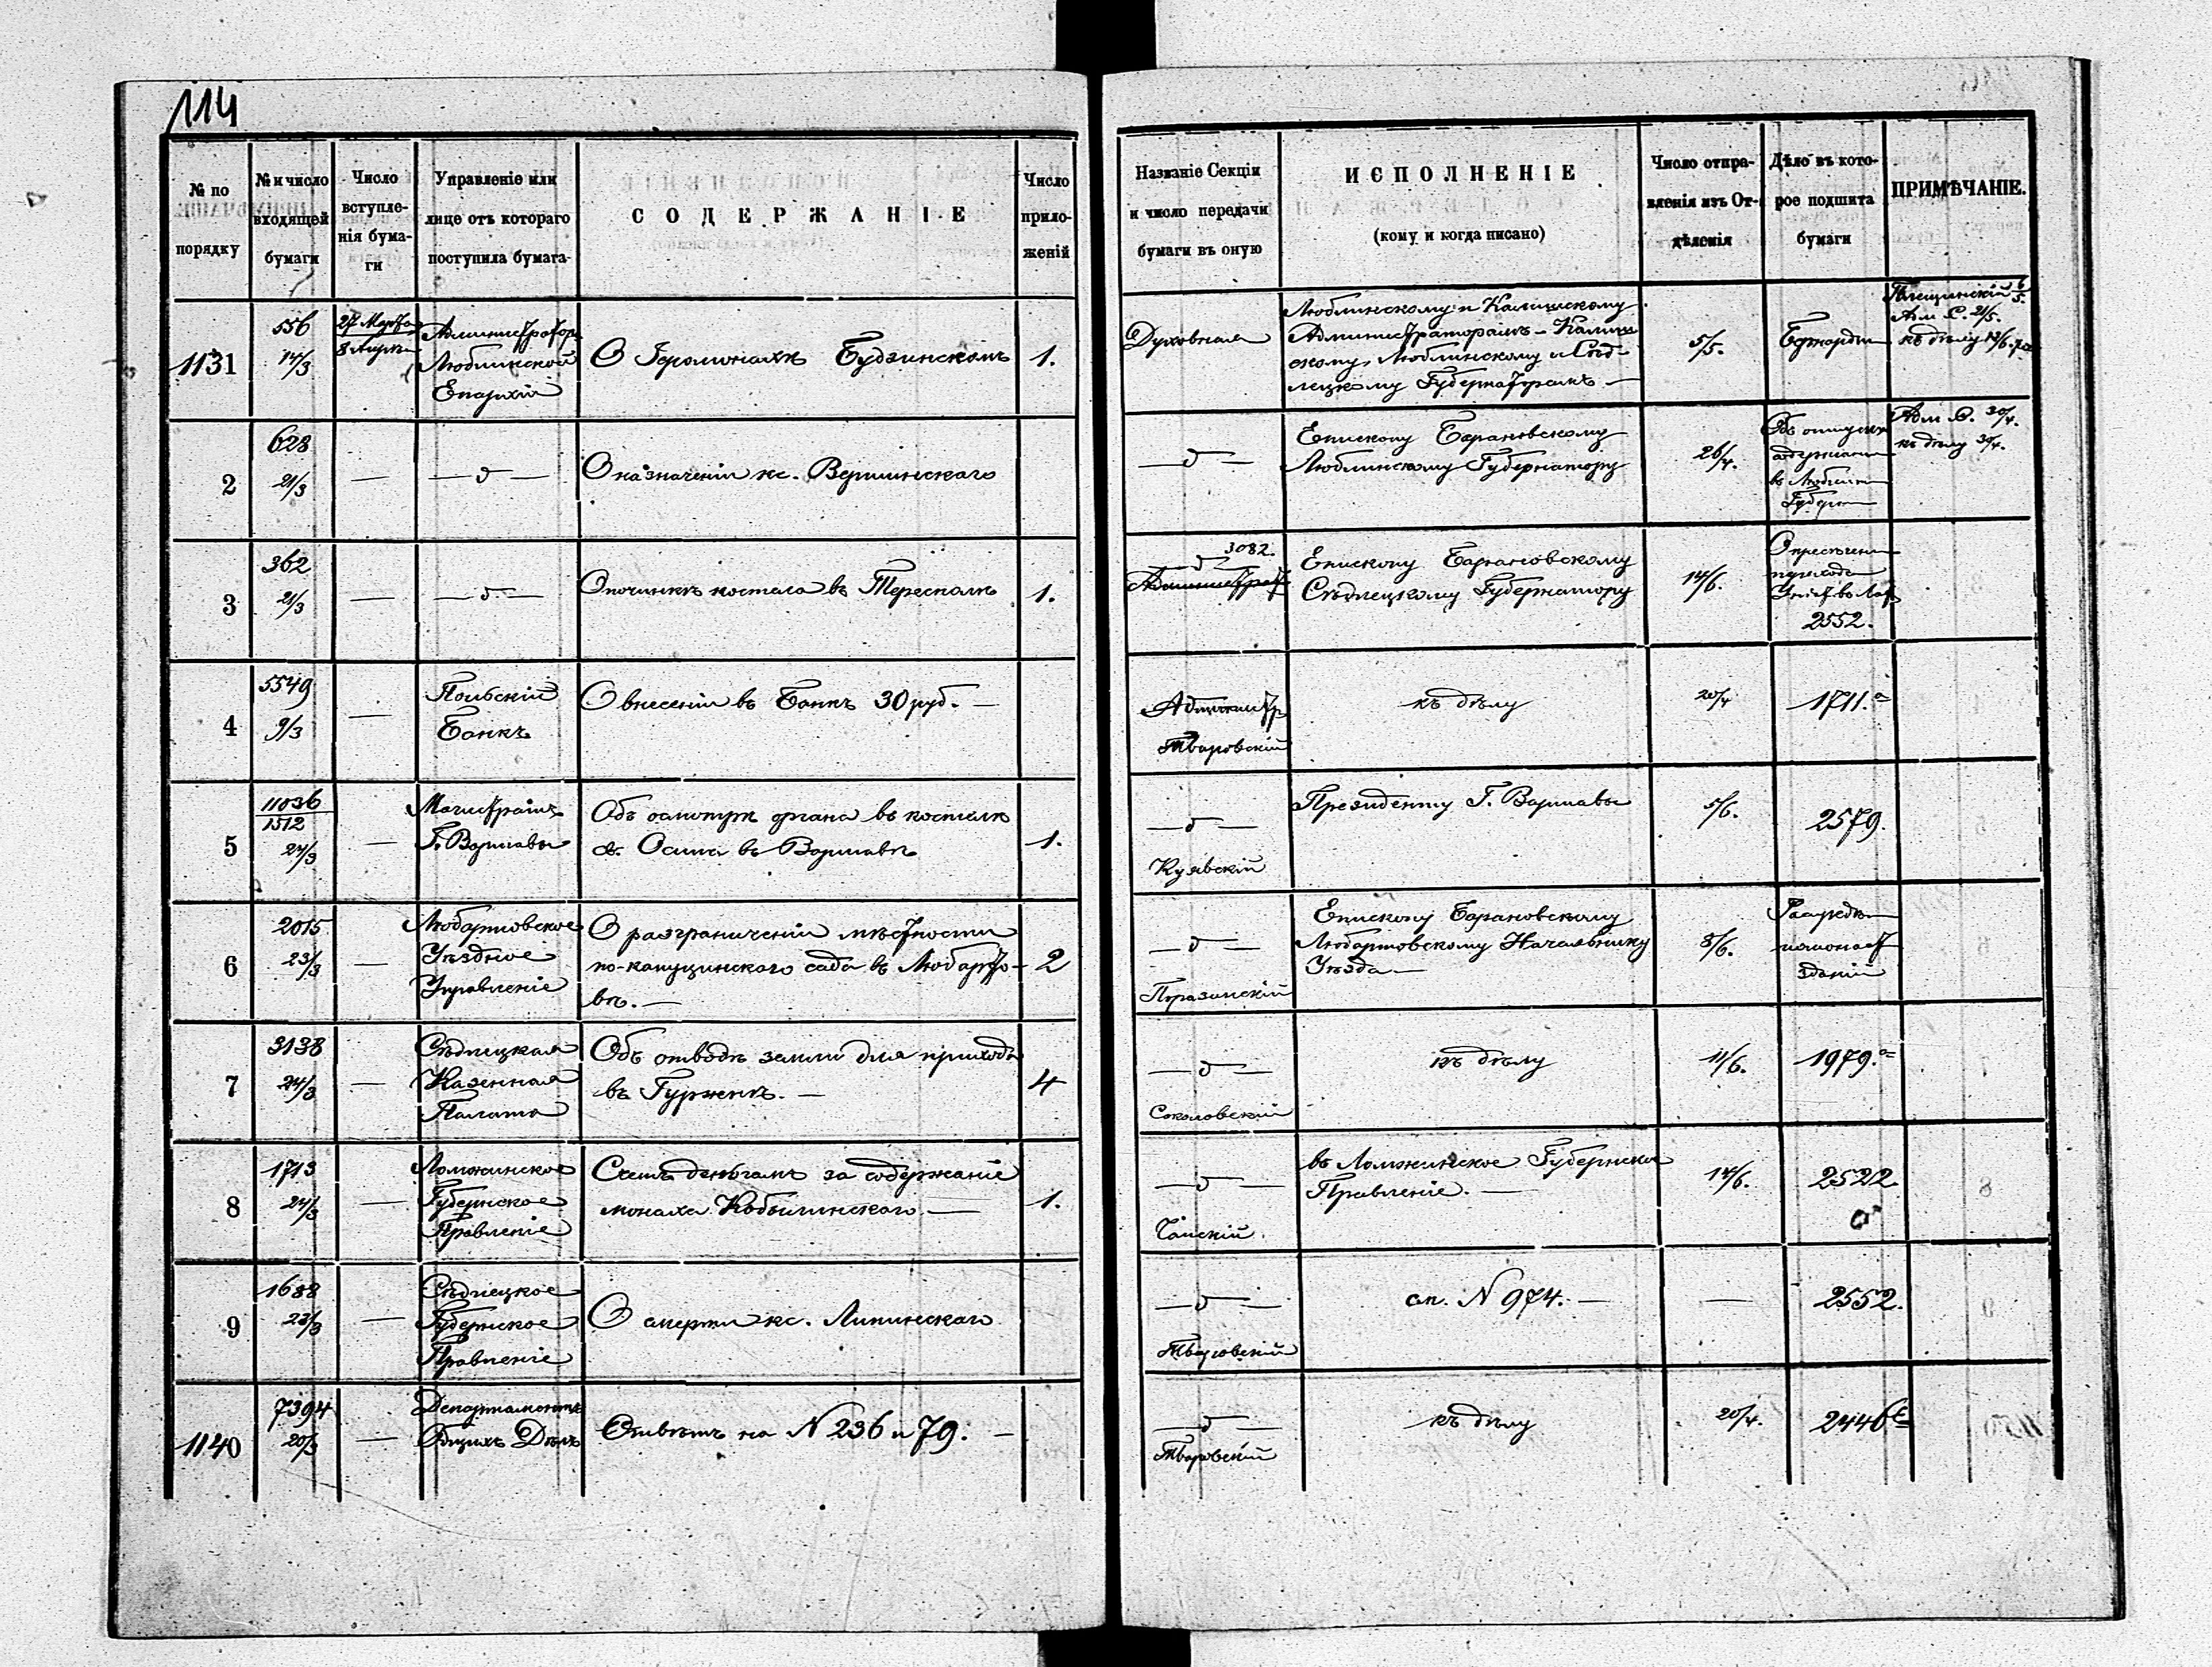 114
№ по порядку
№ и число входящей бумаги
Число вступле-нія бума-ги
Управленіе или лице отъ котораго поступила бумага
СОДЕРЖАНІЕ
Число прило-женій
Названіе Секціи и число передачи бумаги въ оную
ИСПОЛНЕНІЕ
(кому и когда писано)
Число отпра-вленія изъ От-дѣленія
Дѣло въ кото-рое подшита бумаги
ПРИМѢЧАНІЕ.
1131
556
14/3
27 Марта
8 Апрѣля
Администраторъ
Люблинской
Епархіи
О Іеромонахѣ Будзинскомъ
1.
Духовная
Люблинскому и Калишскому
Администраторамъ - Калиш
скому, Люблинскому и Сѣд-
лецкому Губернаторамъ —
5/5.
къ дѣлу
2
628
21/3
—
— д —
О назначеніи кс. Вершинскаго
— д —
Епископу Барановскому
Люблинскому Губернатору
26/4.
въ Люблин
Губерн
Адм С. 30/4.
къ дѣлу 30/4.
3
362
21/3
—
— д —
О починкѣ костела въ Тересполѣ
1.
3082.
— д —
Администрат
Епископу Барановскому
Сѣдлецкому Губернатору
14/6.
2552.
4
5549
9/3
—
Польскій
Банкъ
О внесеніи въ Банкъ 30 руб. —
Администр
Тваровскій
къ дѣлу
20/4
1711. а
5
11036
1512
24/3
—
Магистратъ
Г. Варшавы
Объ осмотрѣ органа въ костелѣ
св. Осипа въ Варшавѣ
1.
— д —
Куявскій
Президенту Г. Варшавы
5/6.
2579.
6
2015
23/3
—
Любартовское
Уѣздное
Управленіе
О разграниченіи мѣстности
по-капуцинскаго сада въ Любарто-
вѣ. —
2
— д —
Епископу Барановскому
Любартовскому Начальнику
Уѣзда —
8/6.
зданій
7
3138
24/3
—
Сѣдлецкая
Казенная
Палата
Объ отводѣ земли для прихода
въ Гурженѣ. —
4
— д —
Соколовскій
къ дѣлу
11/6.
1979. а
8
1713
24/3
—
Ломжинское
Губернское
Правленіе
Счетъ деньгамъ за содержаніе
монаха Кобылинскаго —
1.
— д —
въ Ломжинское Губернское
Правленіе. —
14/6.
2522.
а
9
1688
23/3
—
Сѣдлецкое
Губернское
Правленіе
О смерти кс. Липинскаго
— д —
Тваровскій
сп. N 974. —
—
2552.
1140
7394
20/3
—
Департаментъ
Общихъ Дѣлъ
Отвѣтъ на N 236 и 79. —
— д —
Тваровскій
къ дѣлу
20/4.
2446